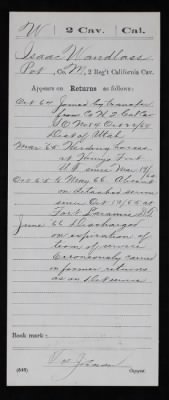 W | 2 Cav. | Cal.
Isaac Wandloss
Pvt., Co. M, 2 Reg't California Cav.
Appears on Returns as follows:
Oct 64 Joined by transfer
from Co
Dist of Utah
Mar 65 Herding horses
at Fort
U.T. since Mar
Oct 65 to May 66 Absent
on detached service
since Oct 17/65 at
Fort Laramie D.T.
June 66 Discharged
on expiration of
term of service
Erroneously carried
in former returns
as on Det service
Book mark:
(546) Copyist.